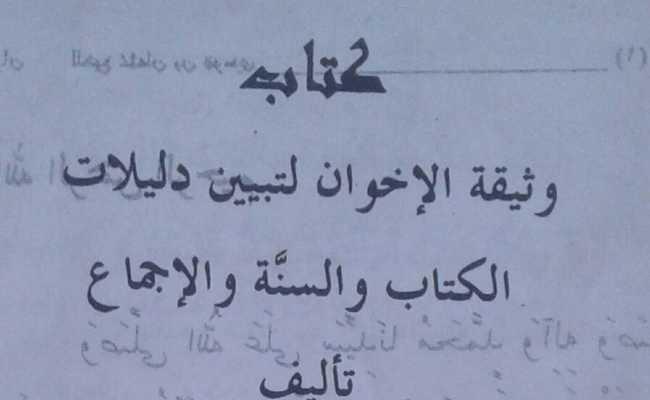 كتاب
وثيقة الإخوان لتبيين دليلات
الكتاب والسنَّة والإجماع
تأليف